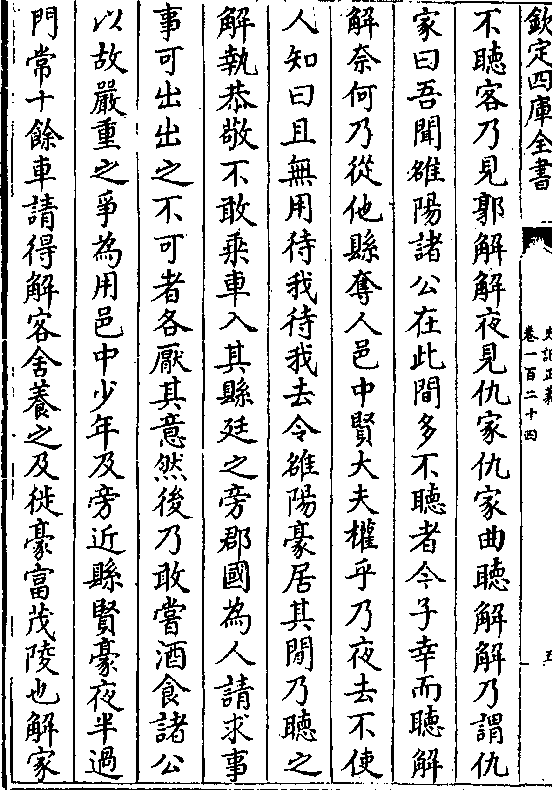 欽定四庫全書
史記正義
卷一百二十四
五
不聽客乃見郭解解夜見仇家仇家曲聽解解乃謂仇
家曰吾聞雒陽諸公在此間多不聽者今子幸而聽解
解奈何乃從他縣奪人邑中賢大夫權乎乃夜去不使
人知曰且無用待我待我去令雒陽豪居其間乃聽之
解執恭敬不敢乘車入其縣廷之旁郡國為人請求事
事可出出之不可者各厭其意然後乃敢嘗酒食諸公
以故嚴重之爭為用邑中少年及旁近縣賢豪夜半過
門常十餘車請得解客舍養之及徙豪富茂陵也解家